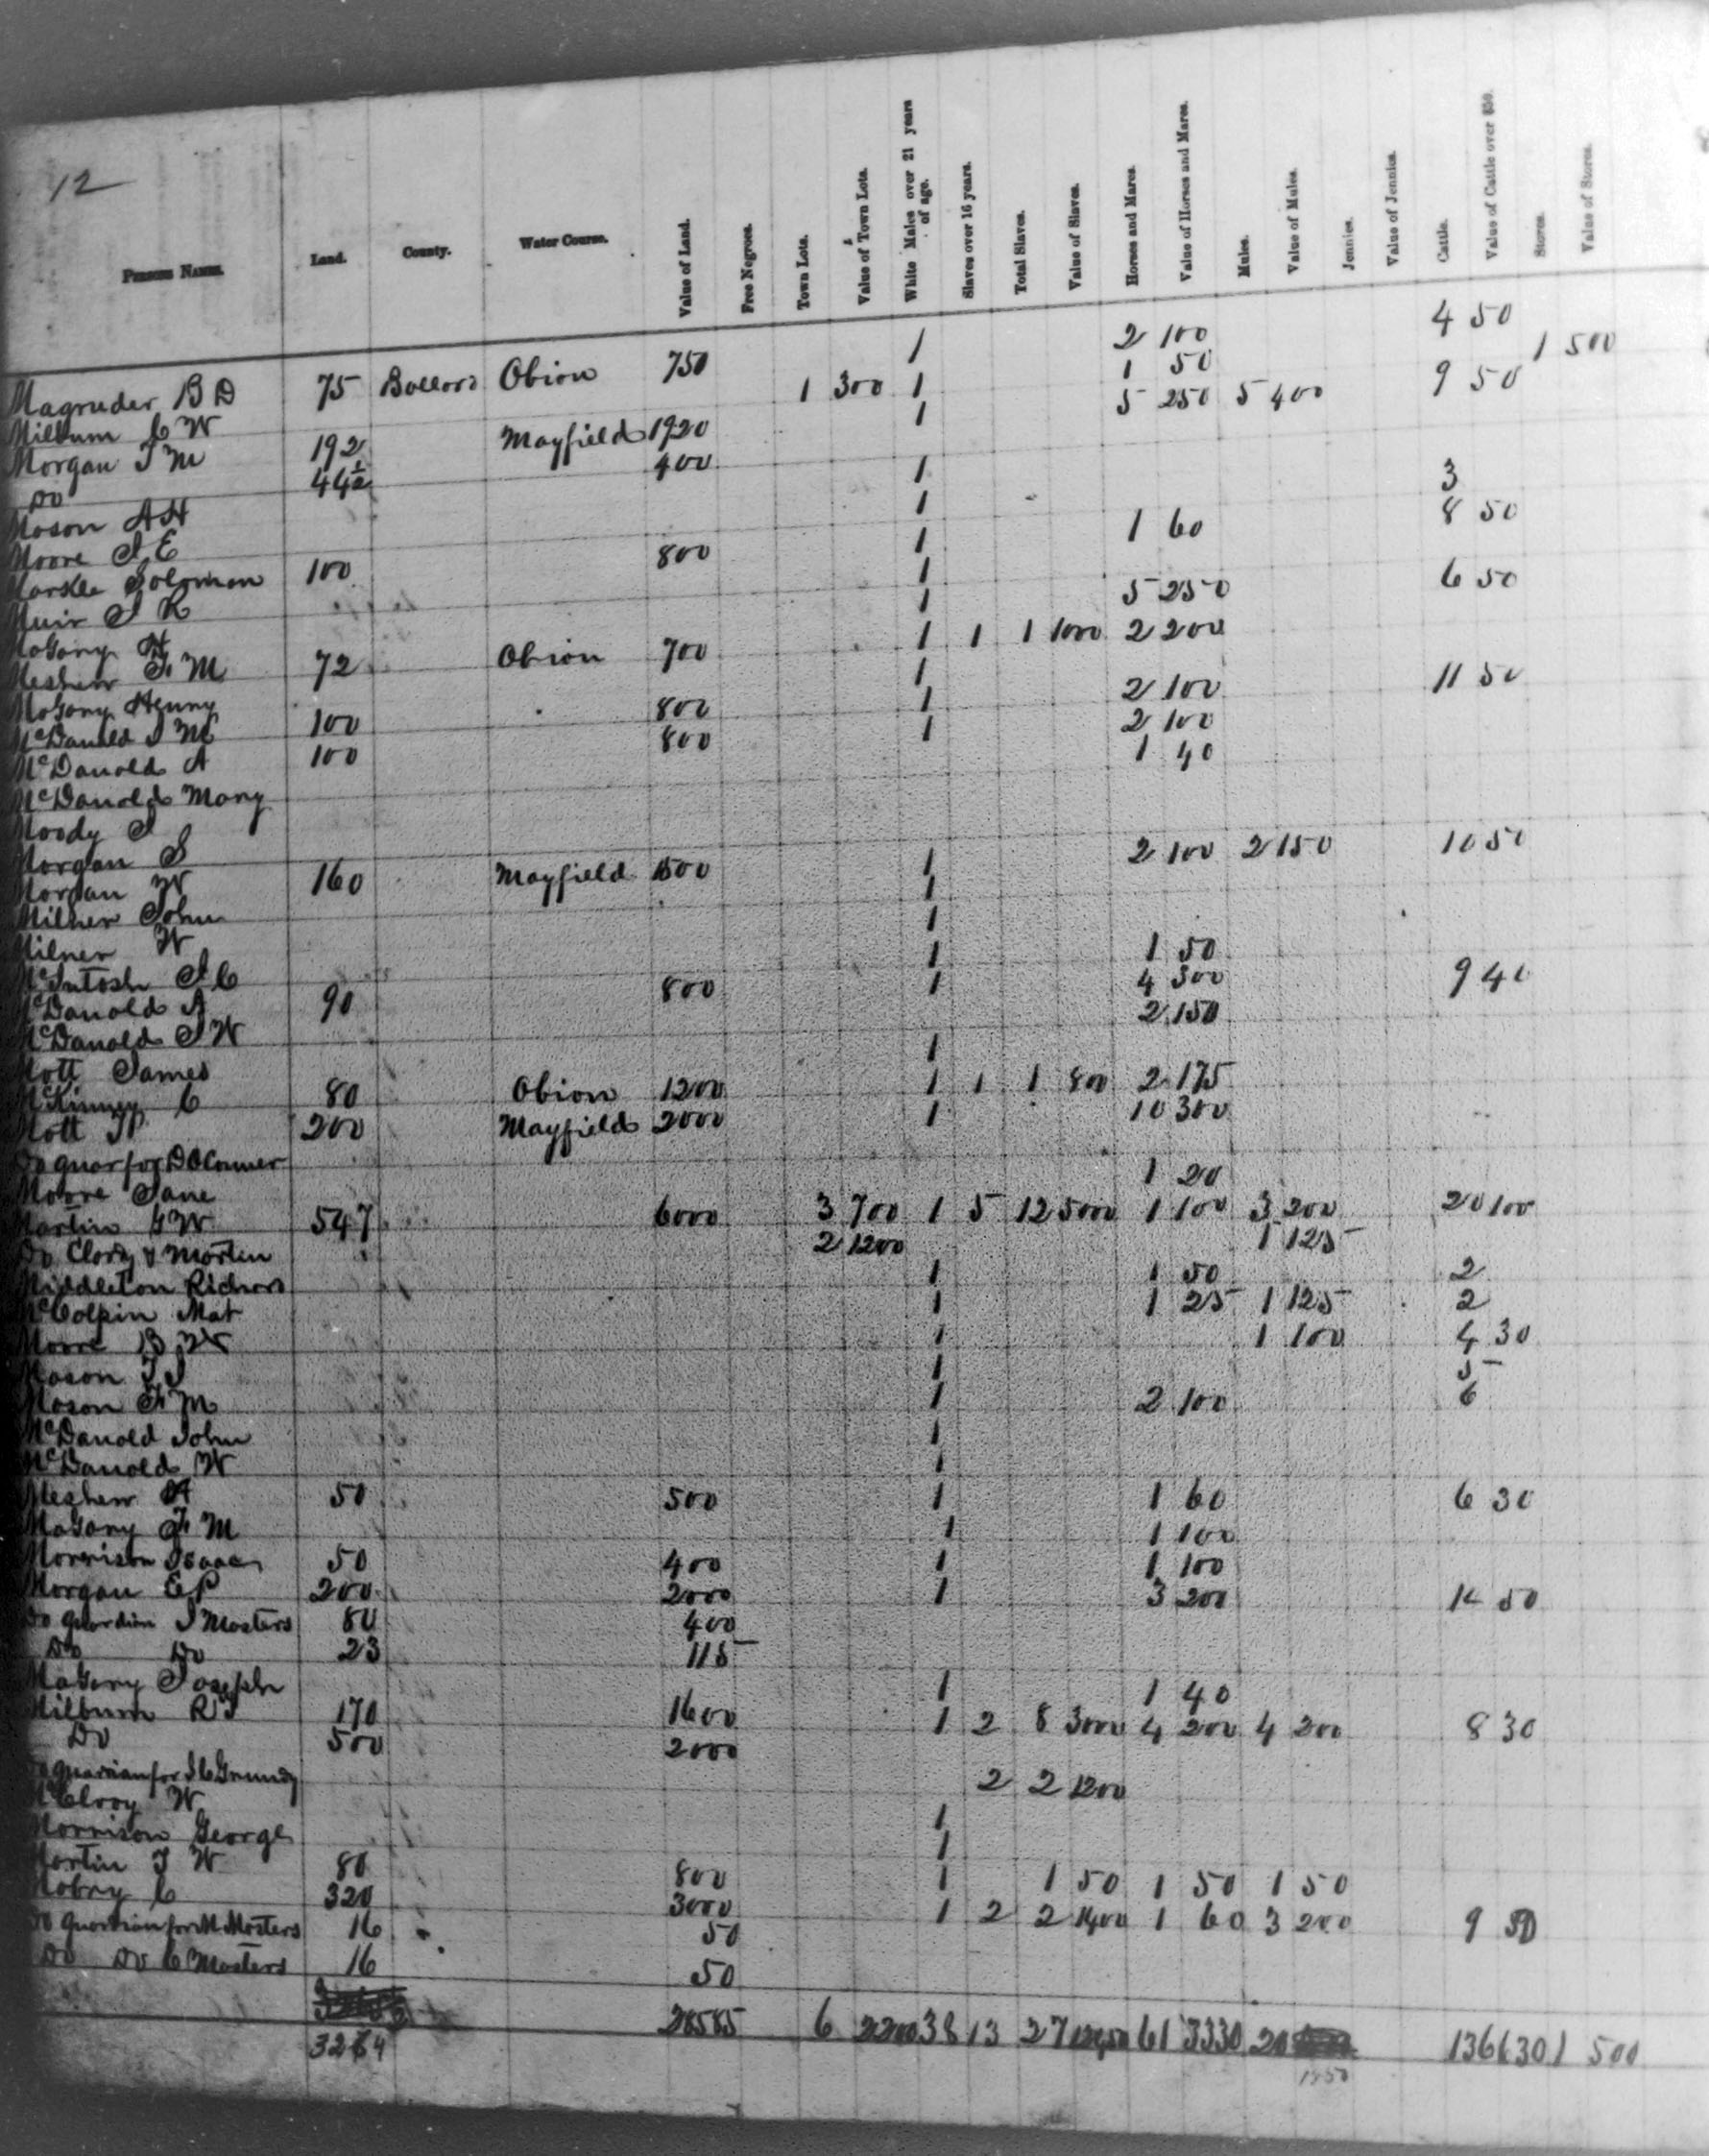 12
Persons Names. Land. County. Water Course. Value of Land. Free Negroes. Town Lots. Value of Town Lots. White Males over 21 years of age. Slaves over 16 years. Total Slaves. Value of Slaves. Horses and Mares. Value of Horses and Mares. Mules. Value of Mules. Jennies. Value of Jennies. Cattle. Value of Cattle over $50. Stores. Value of Stores.
Magruder B D 75 Ballard Obion 750 1 2 100 4 50
Milburn C W 1 300 1 1 50 1 500
Morgan T M 192 Mayfield 1920 1 5 250 5 400 9 50
Do 44½ 400
Mason A H 1
Moore J E 1 3
Markle Solomon 100 800 1 1 60 8 50
Muir J R 1
McGary H 1 5 250 6 50
Meshew F M 72 Obion 700 1 1 1 1000 2 200
McGary Henry 1
McDanold J M 100 800 1 2 100 11 50
McDanold A 100 800 1 2 100
McDanold Mary 1 40
Moody J
Morgan S
Morgan W 160 Mayfield 1500 1 2 100 2 150 10 50
Milner John 1
Milner W 1
McIntosh J C 1 1 50
McDanold A 90 800 1 4 300 9 40
McDanold J W 2 150
Mott James 1
McKinney C 80 Obion 1200 1 1 1 800 2 175
Mott J P 200 Mayfield 2000 1 10 300
Do guar for D O Conner
Moore Jane 1 20
Martin G W 547 6000 3 700 1 5 12 5000 1 100 3 200 20 100
Do Clardy & Martin 2 1200 1 125
Middleton Richard 1 1 50 2
McColpin Mat 1 1 25 1 125 2
Moore B W 1 1 100 4 30
Mason T J 1 5
Mason F M 1 2 100 6
McDanold John 1
McDanold W 1
Meshew A 50 500 1 1 60 6 30
McGary F M 1 1 100
Morrison Isaac 50 400 1 1 100
Morgan E P 200 2000 1 3 200 14 50
Do guardian J Masters 80 400
Do Do 23 115
McGary Joseph 1 1 40
Milburn R J 170 1600 1 2 8 3000 4 200 4 200 8 30
Do 500 2000
Do guardian for J C Grundy 2 2 1200
McElroy W 1
Morrison George 1
Martin J W 80 800 1 1 50 1 50 1 50
Mobry C 320 3000 1 2 2 1400 1 60 3 200 9 50
Do guardian for M Masters 16 50
Do Do C Masters 16 50
3264 28585 6 2200 38 13 27 61 3330 20 136 630 1 500
1350